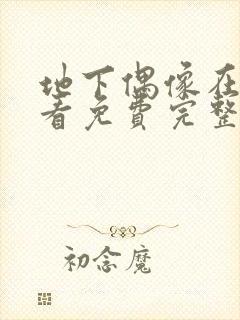 地下偶像在
看免费完整
初念魔